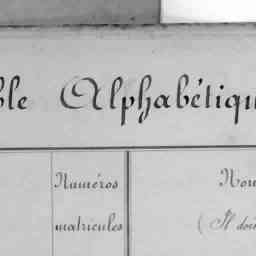 ble Alphabétiqu
Numéros
matricules
Nom
( Il doi